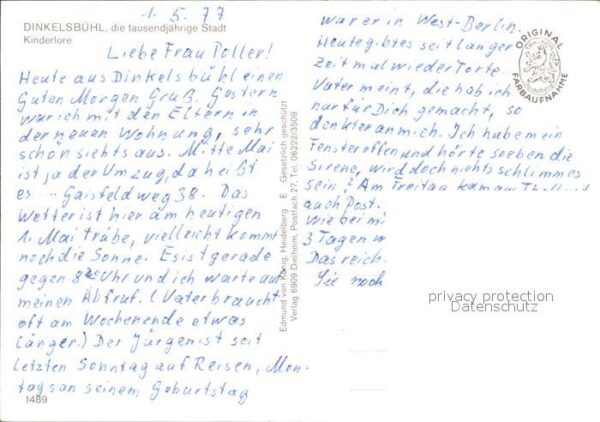 DINKELSBÜHL, die tausendjährige Stadt
Kinderlore
1. 5. 77
Liebe Frau Toller!
Heute aus Dinkelsbühl einen
Guten Morgen Gruß. Gestern
war ich mit den Eltern in
der neuen Wohnung, sehr
schön siehts aus. Mitte Mai
ist ja der Umzug, da heißt
es -- Gaisfeldweg 38. Das
Wetter ist hier am heutigen
1. Mai trübe, vielleicht kommt
noch die Sonne. Es ist gerade
gegen 8 Uhr und ich warte auf
meinen Abfruf. (Vater braucht
oft am Wochenende etwas
länger.) Der Jürgen ist seit
letzten Sonntag auf Reisen, Mon-
tags an seinem Geburtstag
1489
Edmund von König, Heidelberg E Gesetzlich geschützt
Verlag 6909 Dielheim, Postfach 27, Tel. 06222/3509
war er in West-Berlin.
Heute gibt es seit langer
Zeit mal wieder Torte.
Vater meint, die hab ich
nur für Dich gemacht, so
denkt er an mich. Ich habe mein
Fenster offen und hörte soeben die
Sirene, wird doch nichts schlimmes
sein? Am Freitag kam
auch Post.
wie bei mi
3 Tagen w
Das reich
Sie noch
ORIGINAL
FARBAUFNAHME
privacy protection
Datenschutz